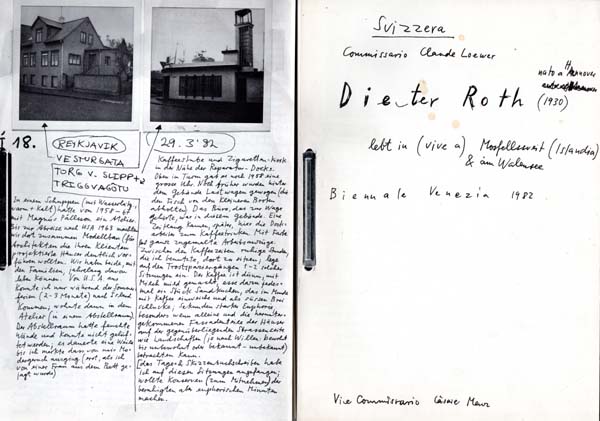 18.
REYKJAVIK
VESTURGATA
TORG V. SLIPP
TRIGGVAGÖTU
29. 3 '82
In einem Schuppen (mit Wasserltg.
warm + kalt) hatte von 1958 - 61
mit Magnús Pálsson ein Atelier.
Bis zur Abreise nach USA 1963 machten
wir dort zusammen Modellbau (für
Architekten die ihren Klienten
projektierte Häuser deutlich vor-
führen wollten. Wir haben beide, mit
den Familien, jahrelang davon
leben können. Von U.S.A. aus
konnte ich nur während der Sommer-
ferien (2-3 Monate) nach Island
kommen; wohnte dann in dem
Atelier (in einem Abstellraum).
Der Abstellraum hatte feuchte
Wände und konnte nicht gelüf-
tet werden; es dauerte eine Weile
bis ich merkte dass von mir Mo-
dergeruch ausging (erst, als ich
von einer Frau aus dem Bett ge-
jagt wurde)
Kaffeestube und Zigaretten-kiosk
in der Nähe der Reparatur-Docks.
Oben im Turm gab es noch 1958 eine
grosse Uhr. Noch früher wurden hinter
dem Gebäude Lastwagen gewogen (die
den Fisch von den kleineren Booten
abholten). Das Büro, das zur Wage
gehörte, war in diesem Gebäude. Eine
Zeitlang kamen, später, hier die Dock-
arbeiter zum Kaffeetrinken. Mit Farbe
ganz zugemalte Arbeitsanzüge.
Zwischen den Kaffeezeiten ruhige Stunden,
die ich benutzte, dort zu sitzen, lege
auf den Trostspaziergängen 1-2 solcher
Sitzungen ein. Der Kaffee ist dünn, mit
Milch mild gemacht, esse dazu jedes-
mal ein Stück Sandkuchen, das im Munde
mit Kaffee einweiche und als süssen Brei
schlucke, Sekunden starker Euphorie,
besonders wenn alleine und die herunter-
gekommenen Fassadenteile der Häuser
auf der gegenüberliegenden Strassenseite
wie Landschaften (je nach Willen bewohnt
bis unbewohnt oder bekannt - unbekannt)
betrachten kann.
[das Tagesch Skizzenbuchschreiben habe
ich auf diesen Sitzungen angefangen;
wollte Konserven (zum Mitnehmen) der
beruhigten als euphorischen Minuten
machen.
Svizzera
Commissario Claude Loewer
nato a Hannover
Dieter Roth (1930)
lebt in (vive a) Mosfellssveit (Islandia)
& am Walensee
Biennale Venezia 1982
Vice Commissario Cäsar Menz